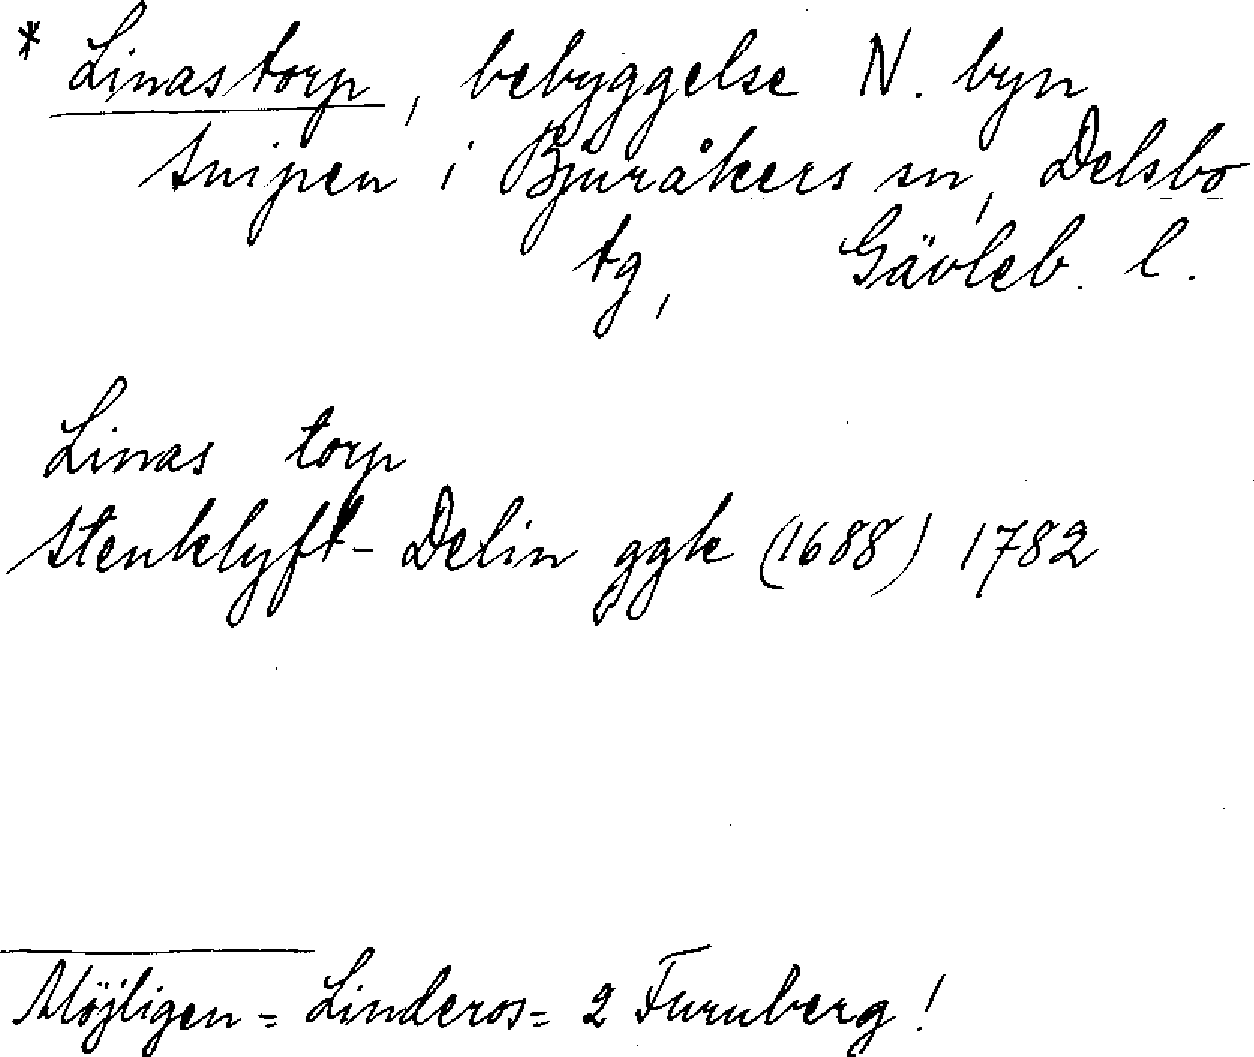 * Linastorp, bebyggelse N. byn
Snipen i Bjuråkers sn, Delsbo
tg, Gävleb. l.
Linas torp
Stenklyft- Delin ggk (1688) 1782
Möjligen = Linderos = 2 Furuberg!